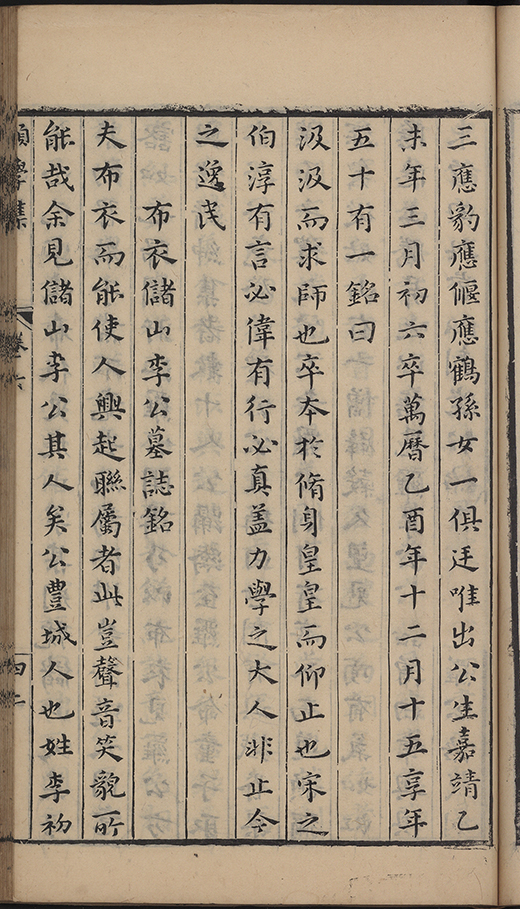 三應豹應偃應鶴孫女一俱廷唯出公生嘉靖乙
未年三月初六卒萬曆乙酉年十二月十五享年
五十有一銘曰
汲汲而求師也卒本於脩身皇皇而仰止也宋之
伯淳有言必偉有行必真盖力學之大人非止今
之逸民
布衣儲山李公墓誌銘
夫布衣而能使人興起聯屬者此豈聲音笑貌所
能哉余見儲山李公其人矣公豊城人也姓李初
願學集
卷六
四二